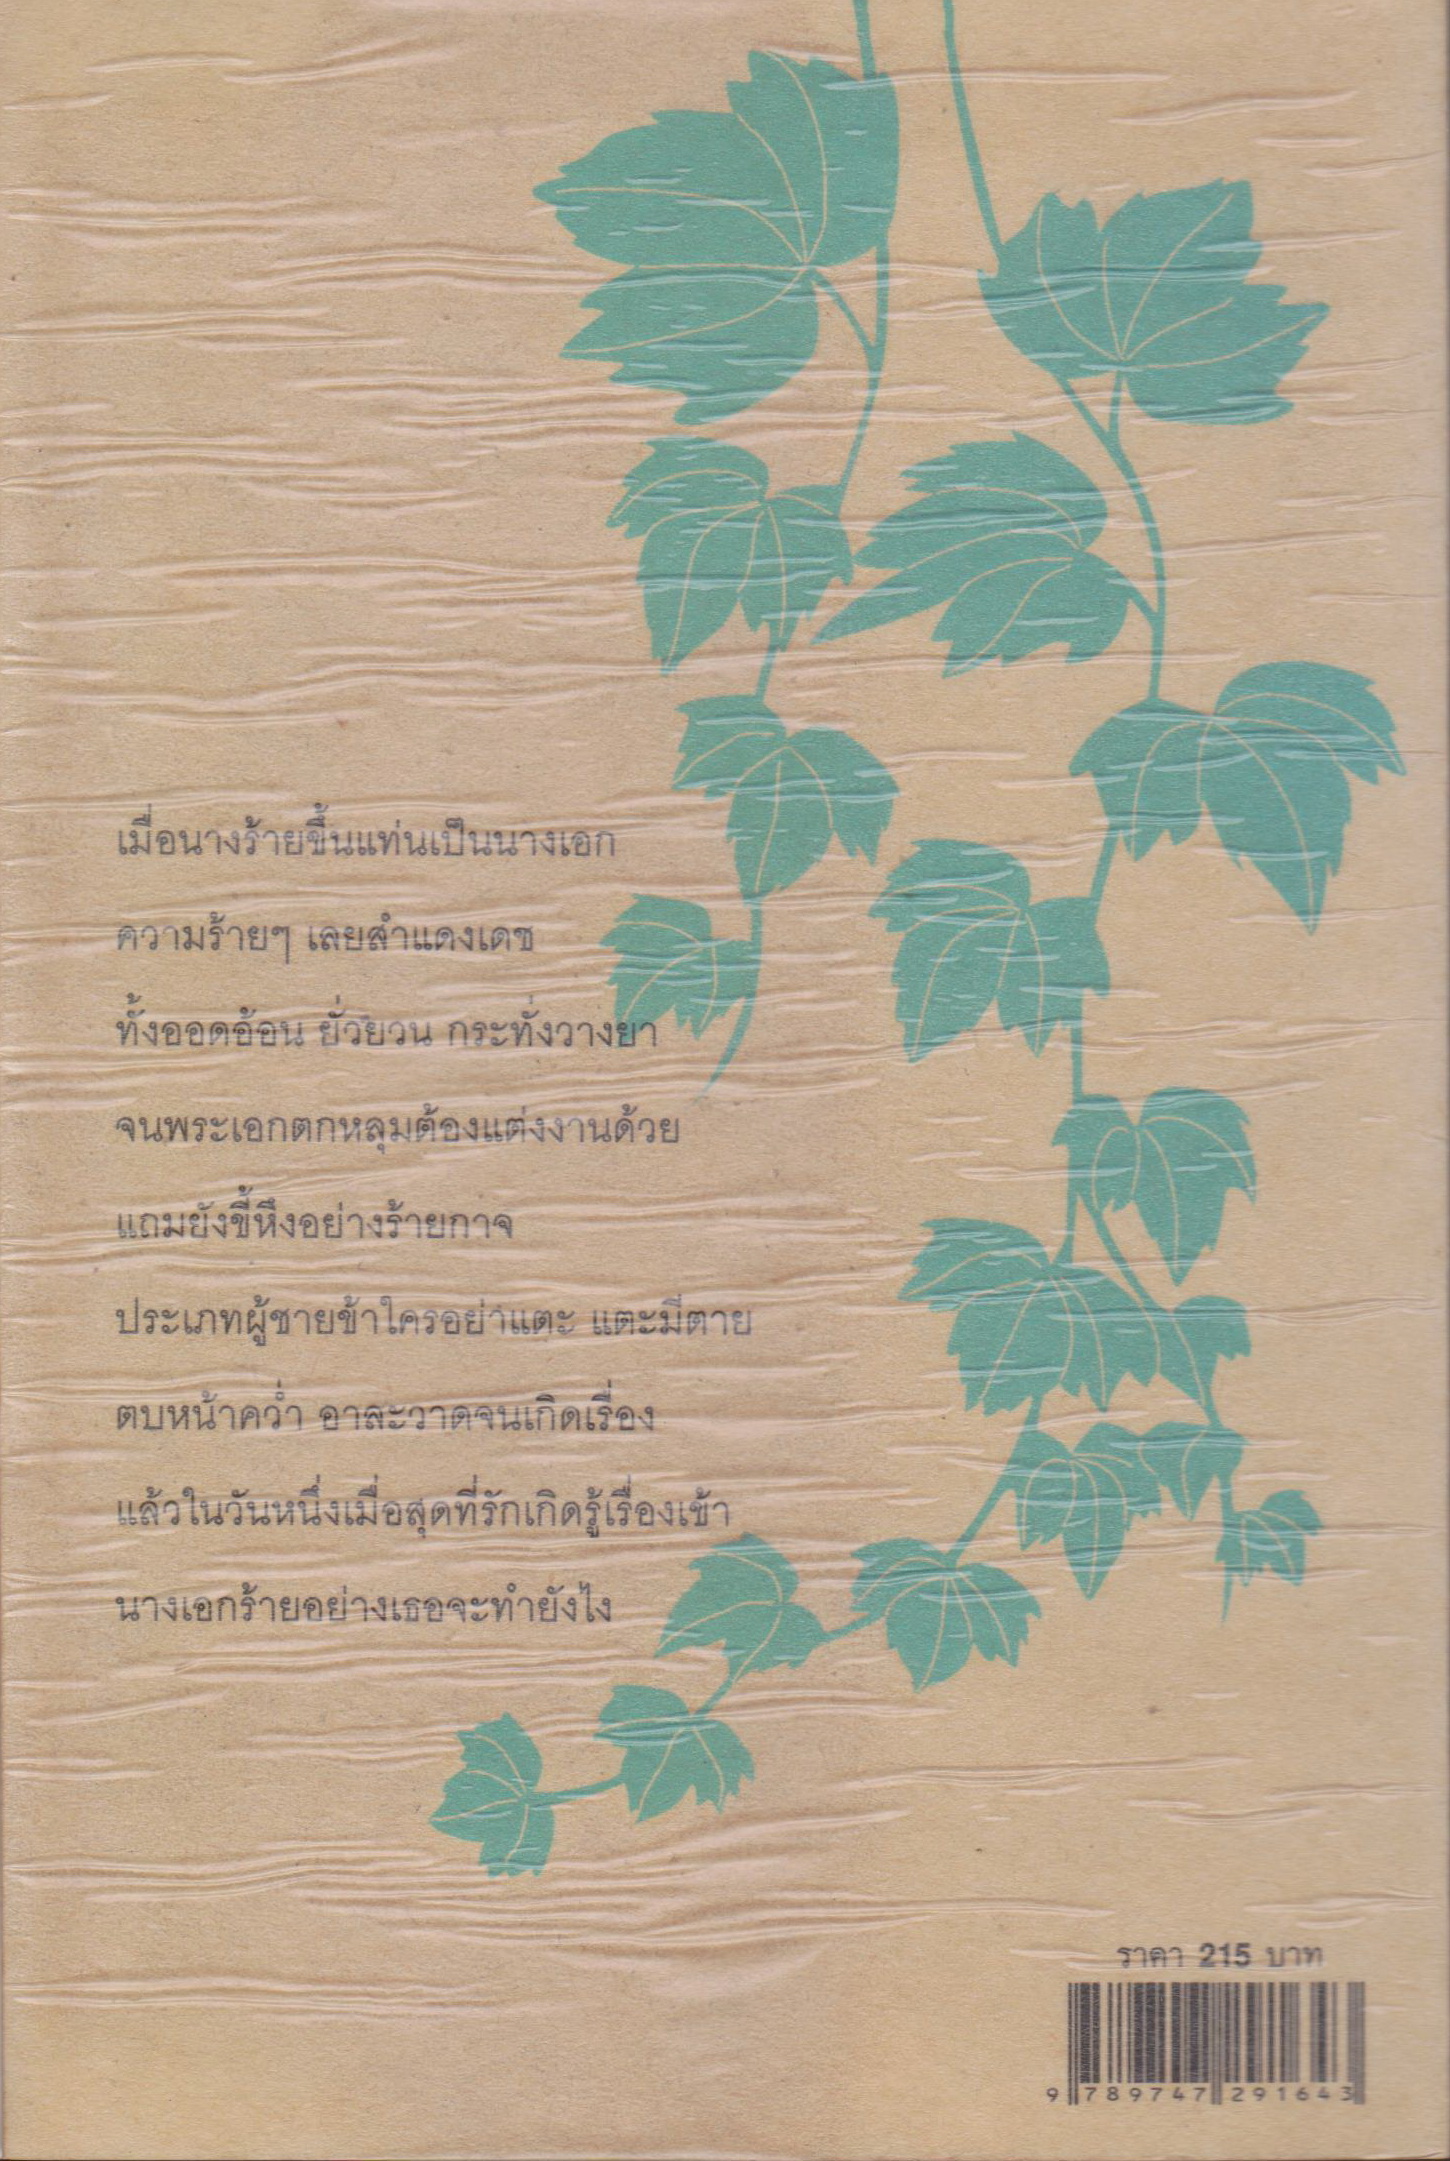 เมื่อนางร้ายขึ้นแท่นเป็นนางเอก
ความร้ายๆ เลยสำแดงเดช
ทั้งออดอ้อน ยั่วยวน กระทั่งวางยา
จนพระเอกตกหลุมต้องแต่งงานด้วย
แถมยังขี้หึงอย่างร้ายกาจ
ประเภทผู้ชายข้าใครอย่าแตะ แตะมีตาย
ตบหน้าคว่ำ อาละวาดจนเกิดเรื่อง
แล้วในวันหนึ่งเมื่อสุดที่รักเกิดรู้เรื่องเข้า
นางเอกร้ายอย่างเธอจะทำยังไง
ราคา 215 บาท
9 789747 291643